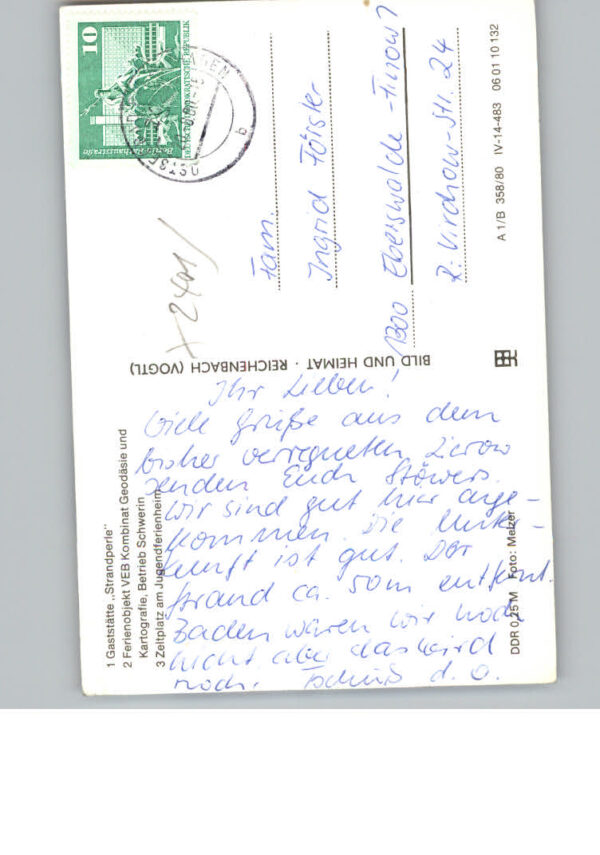 1 Gaststätte „Strandperle"
2 Ferienobjekt VEB Kombinat Geodäsie und
Kartografie, Betrieb Schwerin
3 Zeltplatz am Jugendferienheim
Ihr Lieben!
Viele Grüße aus dem
bisher verregneten Zierow
senden Euch Stöwers.
Wir sind gut hier ange-
kommen. Die Unter-
kunft ist gut. Der
Strand ca. 50m entfernt.
Baden waren wir noch
nicht, aber das wird
noch. Tschüß d. O.
DDR 0,25 M Foto: Melzer
BILD UND HEIMAT · REICHENBACH (VOGTL)
10
DEUTSCHE DEMOKRATISCHE REPUBLIK
Berlin-Rathausstraße
b
x2401/
Fam.
Ingrid Förster
1300 Eberswalde-Finow 1
R.-Virchow-Str. 24
A 1/B 358/80 IV-14-483 06 01 10 132